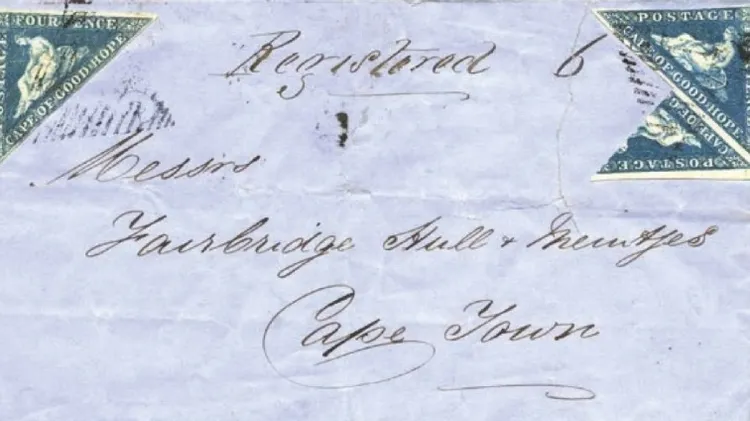 FOUR PENCE
POSTAGE
CAPE OF GOOD HOPE
POSTAGE
CAPE OF GOOD HOPE
CAPE OF GOOD
POSTAGE
Registered 6
Messrs
Fairbridge Hull + Meintjes
Cape Town